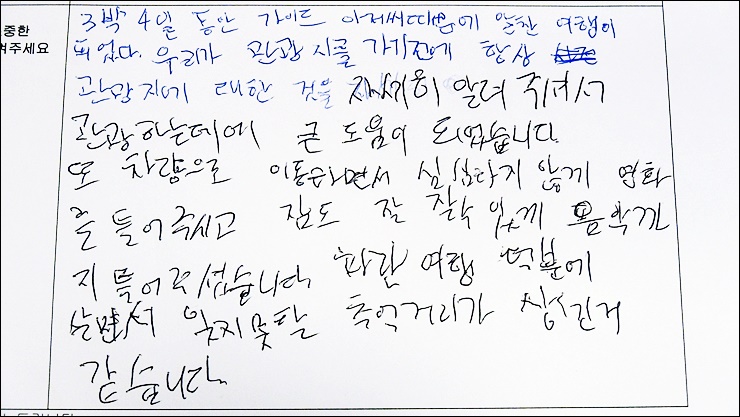 중한
겨주세요
3박 4일 동안 가이드 아저씨때문에 알찬 여행이
되었다. 우리가 관광지를 가기전에 항상
관광지에 대한 것을 자세히 알려 주셔서
관광하는데에 큰 도움이 되었습니다.
또 차량으로 이동하면서 심심하지 않게 영화
를 틀어주시고 잠도 잘 잘수 있게 음악까
지 틀어주셨습니다. 파란 여행 덕분에
살면서 잊지못할 추억거리가 생긴거
같습니다.